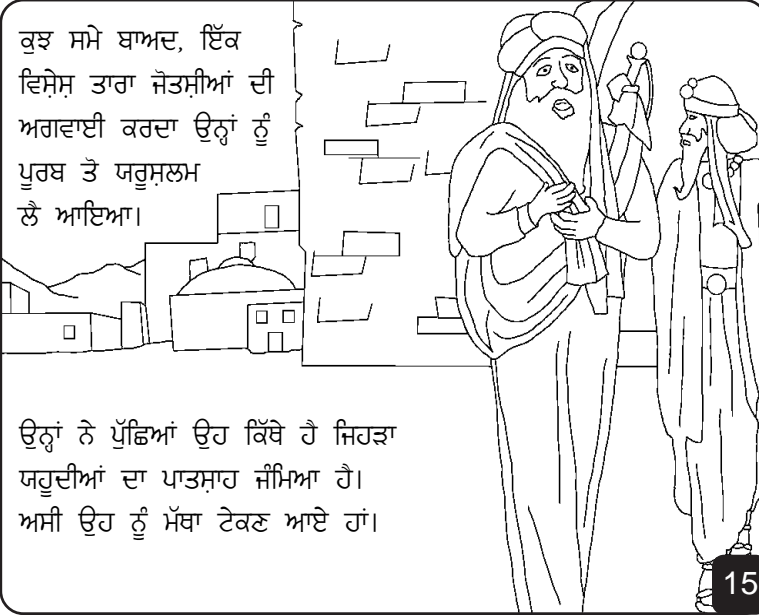 ਕੁਝ ਸਮੇ ਬਾਅਦ, ਇੱਕ
ਵਿਸ਼ੇਸ਼ ਤਾਰਾ ਜੋਤਸ਼ੀਆਂ ਦੀ
ਅਗਵਾਈ ਕਰਦਾ ਉਨ੍ਹਾਂ ਨੂੰ
ਪੂਰਬ ਤੋ ਯਰੂਸ਼ਲਮ
ਲੈ ਆਇਆ।
ਉਨ੍ਹਾਂ ਨੇ ਪੁੱਛਿਆਂ ਉਹ ਕਿੱਥੇ ਹੈ ਜਿਹੜਾ
ਯਹੂਦੀਆਂ ਦਾ ਪਾਤਸ਼ਾਹ ਜੰਮਿਆ ਹੈ।
ਅਸੀ ਉਹ ਨੂੰ ਮੱਥਾ ਟੇਕਣ ਆਏ ਹਾਂ।
15